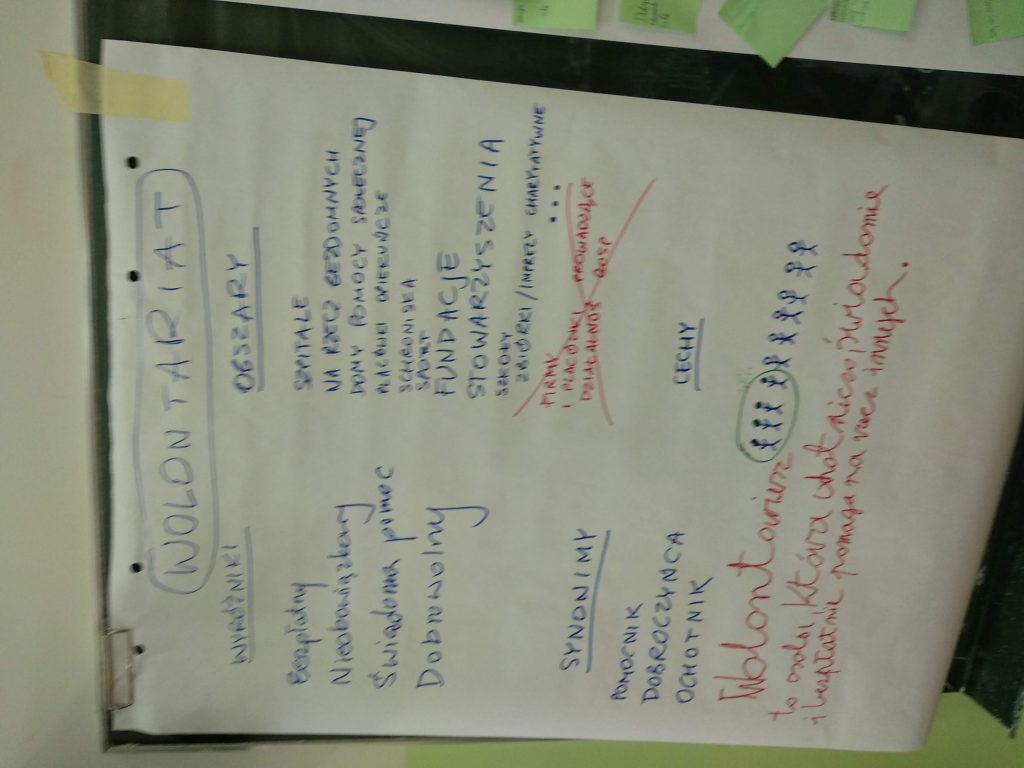 WOLONTARIAT
WYRÓŻNIKI
Bezpłatny
Nieobowiązkowy
Świadoma pomoc
Dobrowolny
OBSZARY
SZPITALE
NA RZECZ BEZDOMNYCH
DOMY POMOCY SPOŁECZNEJ
PLACÓWKI OPIEKUŃCZE
SCHRONISKA
SPORT
FUNDACJE
STOWARZYSZENIA
SZKOŁY
ZBIÓRKI/IMPREZY CHARYTATYWNE
...
FIRMY
I PLACÓWKI PROWADZĄCE
DZIAŁALNOŚĆ GOSP
SYNONIMY
POMOCNIK
DOBROCZYŃCA
OCHOTNIK
CECHY
Wolontariusz
to osoba, która ochotniczo, świadomie
i bezpłatnie pomaga na rzecz innych.